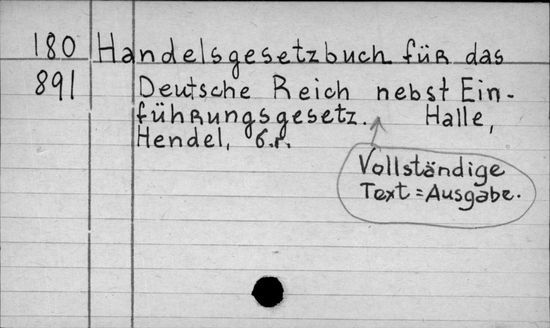 180 Handelsgesetzbuch für das
891 Deutsche Reich nebst Ein-
führungsgesetz. Halle,
Hendel, 6.r.
Vollständige
Text=Ausgabe.